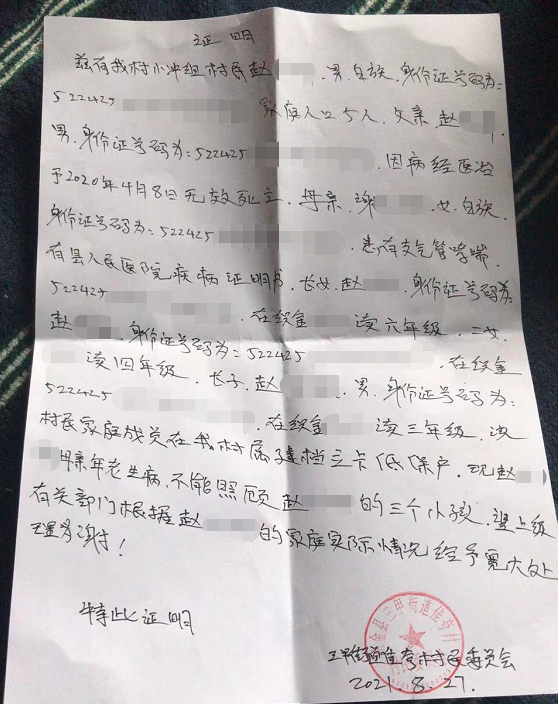 证明
兹有我村小冲组村民赵 . 男. 白族. 身份证号码为:
522425 家庭人口5人. 父亲. 赵
男. 身份证号码为: 522425 因病经医治
于2020年4月8日无效死亡. 母亲. 谢 . 女. 白族.
身份证号码为: 522425 患有支气管哮喘.
有县人民医院疾病证明书. 长女. 赵 . 身份证号码为
522425 在织金 读六年级. 二女.
赵 . 身份证号码为: 522425 在织金
读四年级. 长子. 赵 . 男. 身份证号码为:
522425 . 在织金 读三年级. 该
村民家庭成员在我村属于建档立卡低保户. 现赵
母亲年老生病. 不能照顾赵 的三个小孩. 望上级
有关部门根据赵 的家庭实际情况给予宽大处
理为谢!
特此证明
金县三甲街道 村
三甲街道 村民委员会
2021. 8. 27.